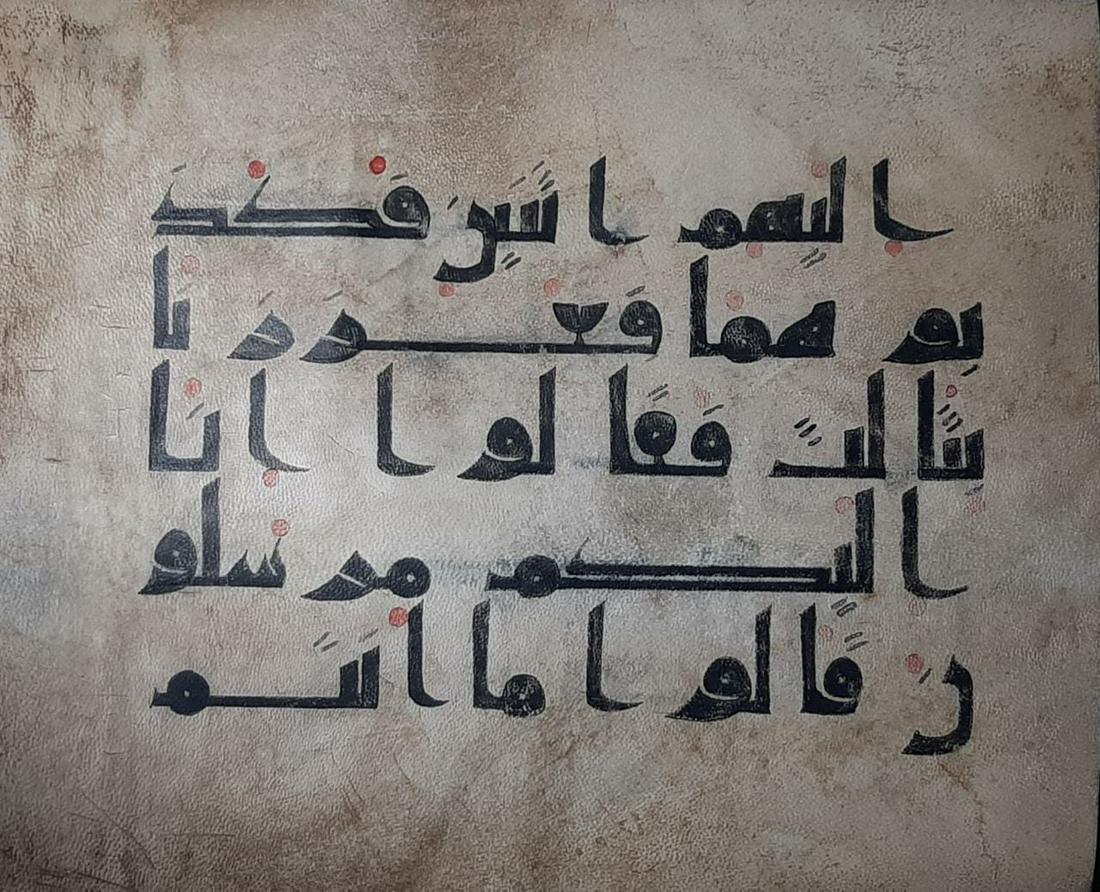 اليهم اثنين فكذ
بوهما فعززنا
بثالث فقالوا انا
اليكم مرسلو
ن قالوا ما انتم